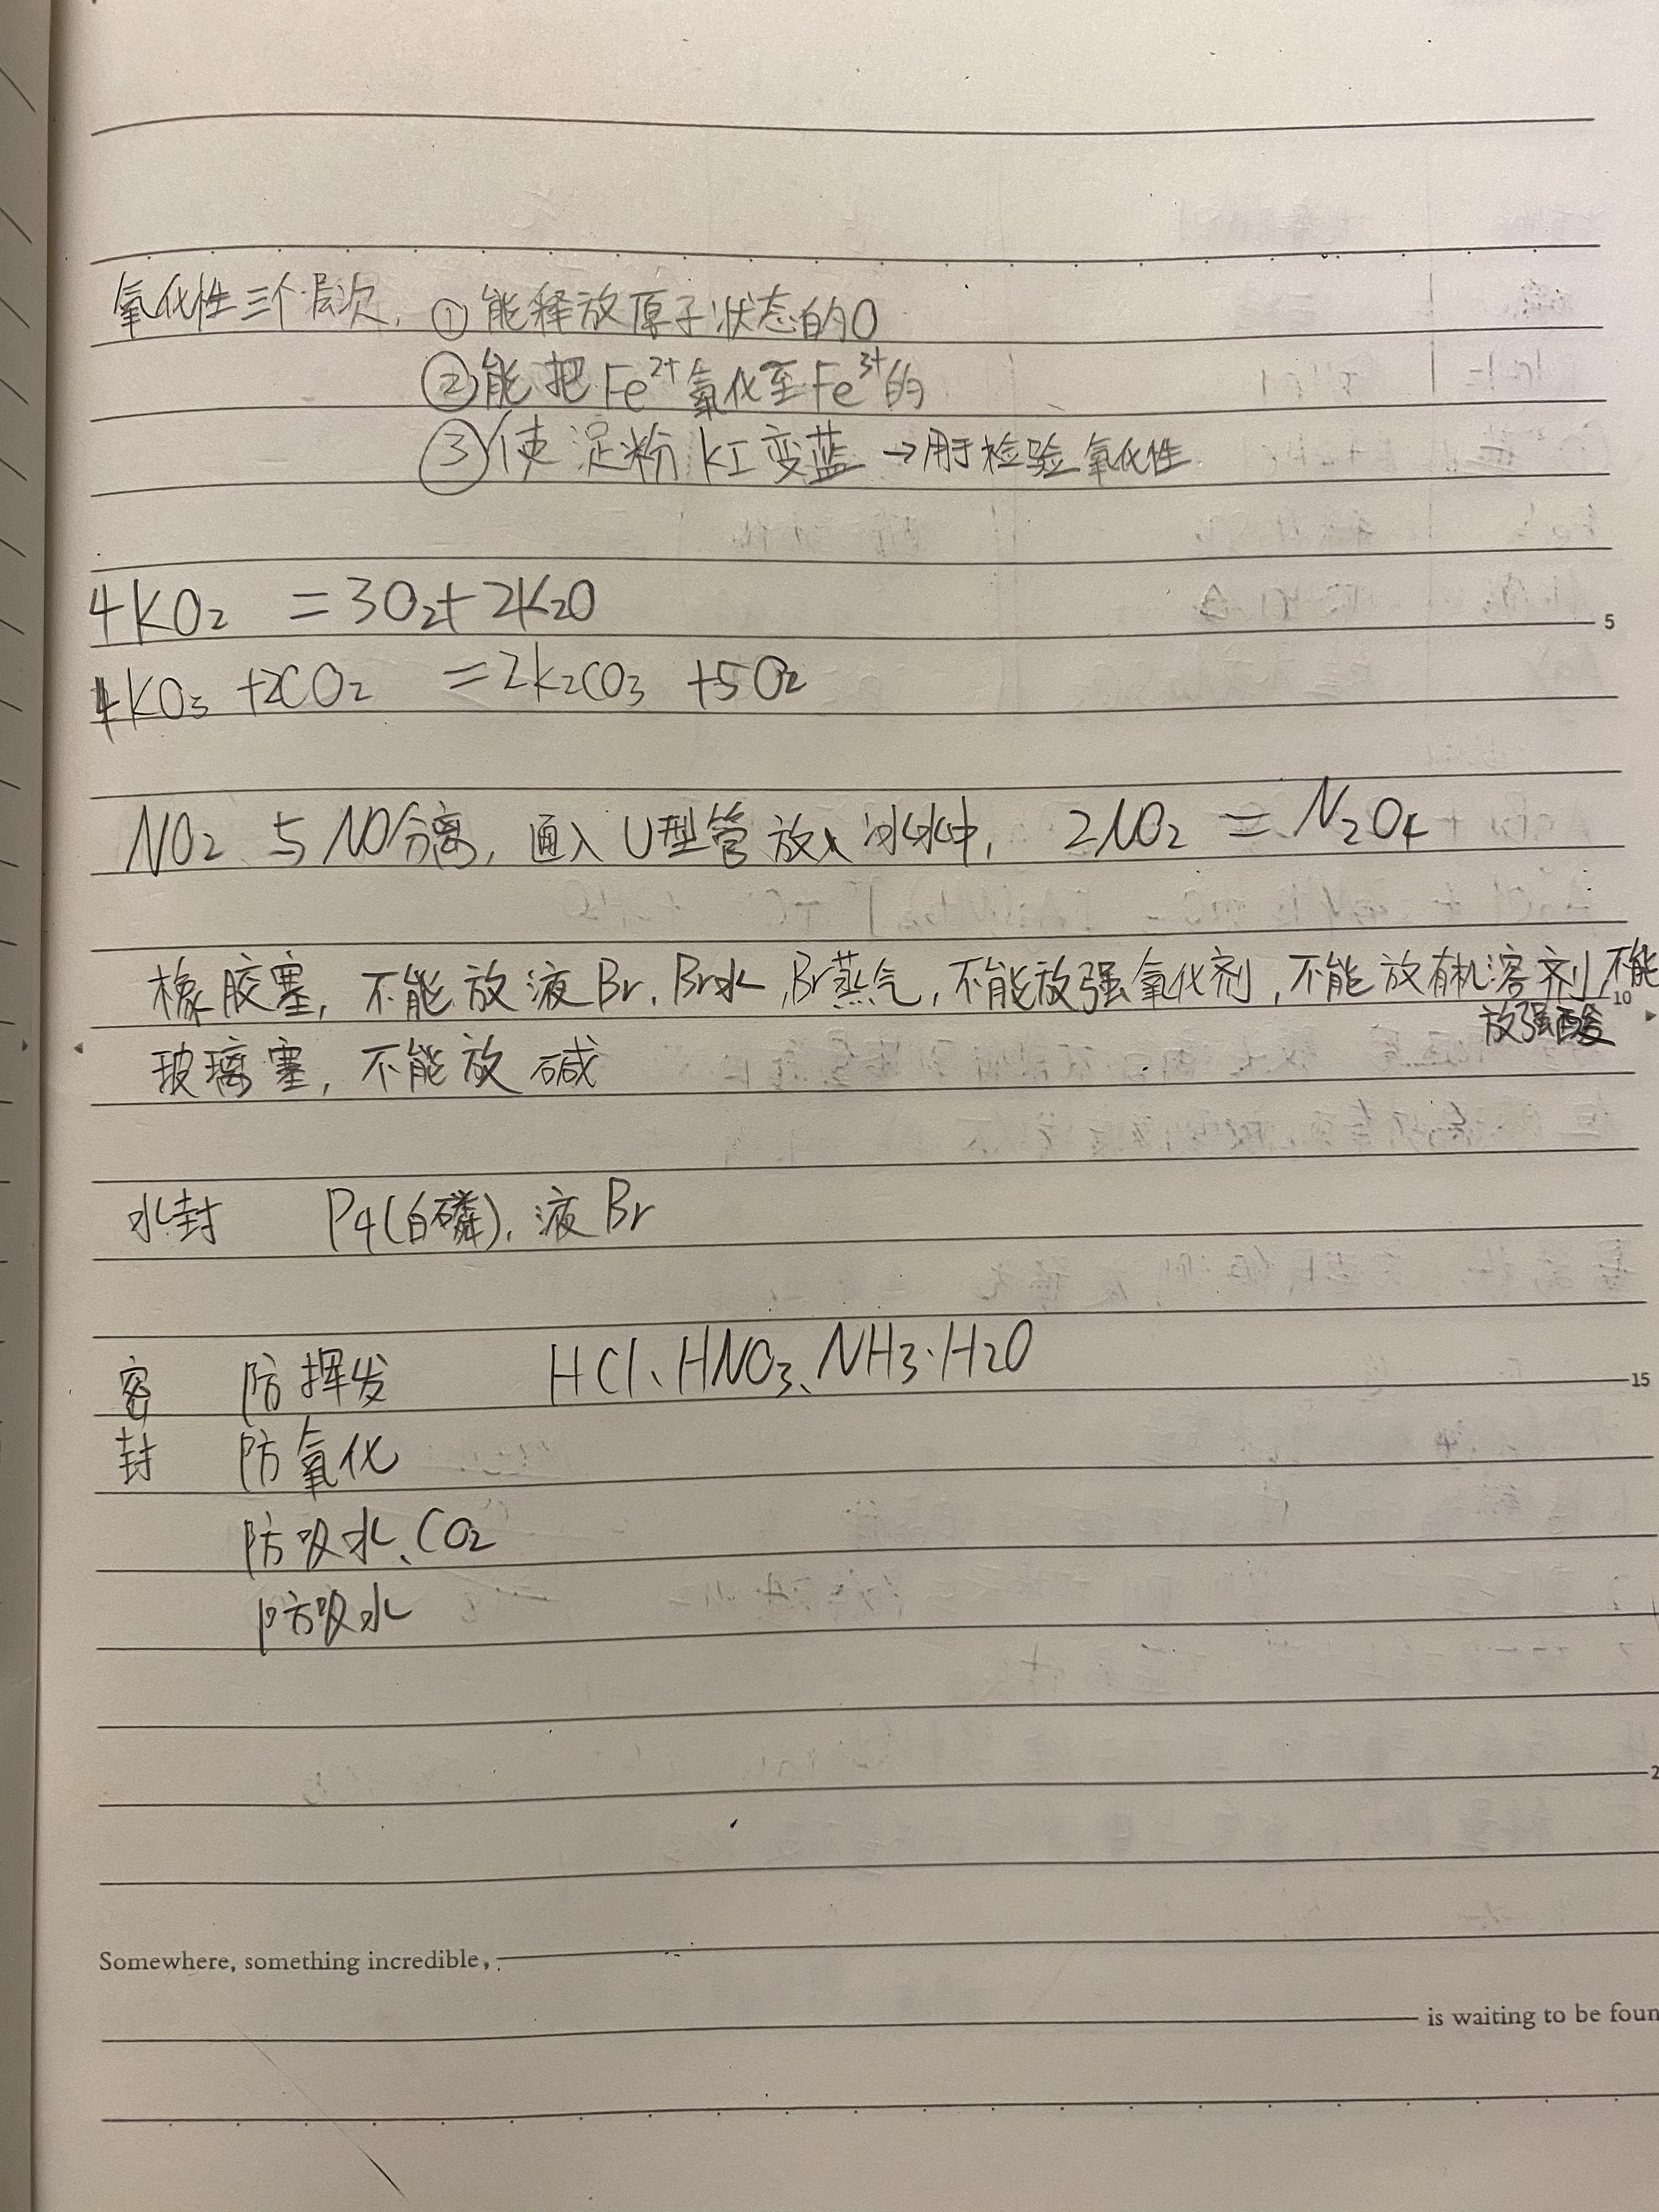 氧化性三个层次, ①能释放原子状态的O
②能把Fe²⁺氧化至Fe³⁺的
③使淀粉KI变蓝→用于检验氧化性
4KO₂ = 3O₂+2K₂O
5
4KO₃ +2CO₂ =2K₂CO₃ +5O₂
NO₂与NO分离, 通入U型管放入冰水中, 2NO₂ = N₂O₄
橡胶塞, 不能放液Br、Br水、Br蒸气, 不能放强氧化剂, 不能放有机溶剂 不能
10
放强酸
玻璃塞, 不能放碱
水封 P₄(白磷)、液Br
密 防挥发 HCl、HNO₃、NH₃·H₂O
15
封 防氧化
防吸水、CO₂
防吸水
2
Somewhere, something incredible,
is waiting to be foun